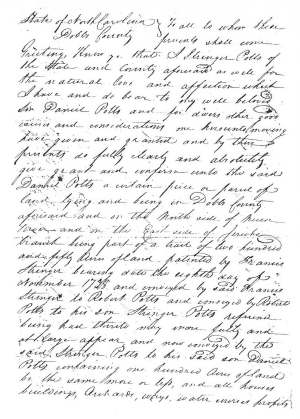 State of North Carolina } To all to whom these
Dobbs County } presents shall come
Greeting, Know ye that I Stringer Potts of
the State and County aforesaid as well for
the natural love and affection which
I have and do bear to my well beloved
Son Daniel Potts and for divers other good
causes and considerations me hereunto moving
have given and granted and by these
presents do fully clearly and absolutely
give grant and confirm unto the said
Daniel Potts a certain piece or parcel of
land lying and being in Dobbs County
aforesaid and on the North side of Neuse
River and on the East side of
branch being part of a tract of two hundred
and fifty Acres of land patented by Francis
Stringer bearing date the eighth day of
November and conveyed by said Francis
Stringer to Robert Potts and conveyed by Robert
Potts to his son Stringer Potts reference
being had thereto may more fully and
at large appear and now conveyed by the
said Stringer Potts to his said son Daniel
Potts containing one hundred Acres of land
be the same more or less, and all houses
buildings, Orchards, ways, water courses profits